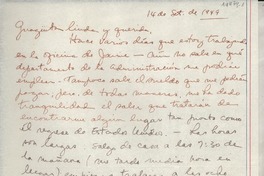 14 de Set. de 1947
linda y querida,
Hace varios días que estoy trabajando
en la oficina de Jaime — aún no sale en qué
departamento de la administración me podrían
emplear. — Tampoco sale el sueldo que me podrán
pagar, pero, de todas maneras, me da
tranquilidad el saber que tratarán de
encontrarme algún lugar tan pronto como
él regrese de Estados Unidos. — Las horas
son largas. Salgo de casa a las 7:30 de
la mañana (me tardo media hora en
llegar) a trabajar a las ocho